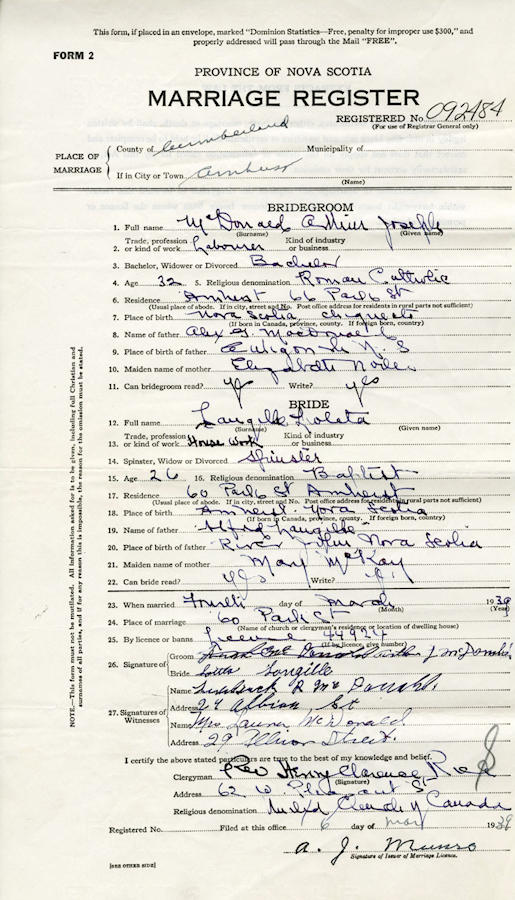 This form, if placed in an envelope, marked "Dominion Statistics—Free, penalty for improper use $300," and
properly addressed will pass through the Mail "FREE".
FORM 2
PROVINCE OF NOVA SCOTIA
MARRIAGE REGISTER
REGISTERED No. 092484
(For use of Registrar General only)
PLACE OF MARRIAGE
County of Cumberland Municipality of
If in City or Town Amherst
(Name)
BRIDEGROOM
1. Full name McDonald Joseph
(Surname) (Given name)
2. Trade, profession or kind of work Labourer Kind of industry or business
3. Bachelor, Widower or Divorced Bachelor
4. Age 32 5. Religious denomination Roman Catholic
6. Residence Amherst 66 Park St
(Usual place of abode. If in city, street and No. Post office address for residents in rural parts not sufficient)
7. Place of birth Nova Scotia
(If born in Canada, province, county. If foreign born, country)
8. Name of father Alex
9. Place of father N. S
10. Maiden name of mother Elizabeth
11. Can bridegroom read? yes Write? yes
BRIDE
12. Full name Langille
(Surname) (Given name)
13. Trade, profession or kind of work House work Kind of industry or business
14. Spinster, Widow or Divorced Spinster
15. Age 26 16. Religious denomination Baptist
17. Residence 60 Park St Amherst
(Usual place of abode. If in city, street and No. Post office address for residents in rural parts not sufficient)
18. Place of birth Amherst Nova Scotia
(If born in Canada, province, county. If foreign born, country)
19. Name of father Alfred Langille
20. Place of birth of father River John Nova Scotia
21. Maiden name of mother Mary McKay
22. Can bride read? yes Write?
23. When married day of March 1939
(Month) (Year)
24. Place of marriage 60 Park St
(Name of church or clergyman's residence or location of dwelling house)
25. By licence or banns License 44924
(If by licence, give number)
26. Signature of Groom J McDonald
Bride Langille
27. Signatures of Witnesses
Name R Mc Donald
Address 24 Albion St
Name Mrs McDonald
Address 29 Street
I certify the above stated particulars are true to the best of my knowledge and belief.
Clergyman Rev Henry Clarence
(Signature)
Address 62 W. Pleasant St
Religious denomination United Church of Canada
Registered No. Filed at this office 6 day of 1939
A. J. Munro
Signature of Issuer of Marriage Licence.
[SEE OTHER SIDE]
NOTE.—This form must not be mutilated. All information asked for is to be given, including full Christian and
surnames of all parties, and if for any reason this is impossible, the reason for the omission must be stated.